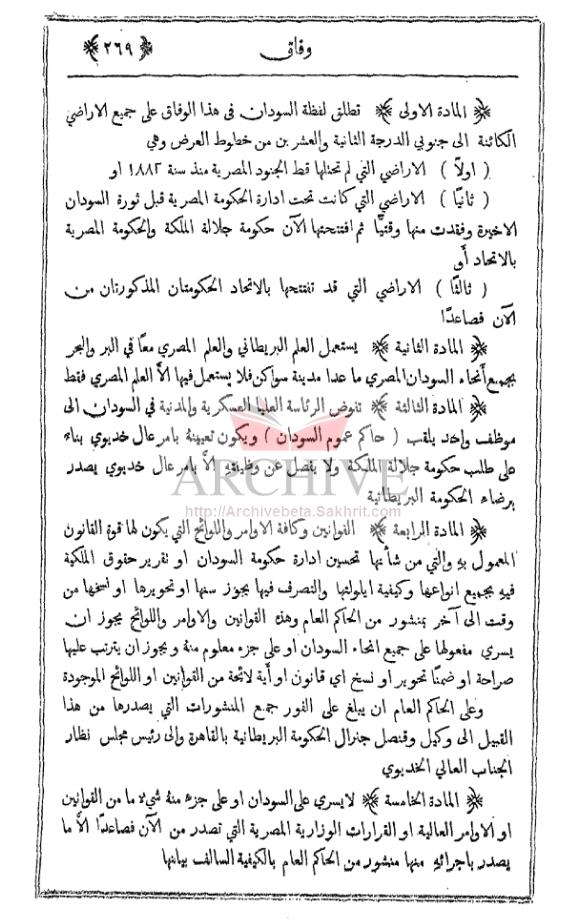 وفاق ﴿ ٢٦٩ ﴾
﴿ المادة الاولى ﴾ تطلق لفظة السودان فى هذا الوفاق على جميع الاراضي
الكائنة الى جنوبي الدرجة الثانية والعشرين من خطوط العرض وهي
( اولاً ) الاراضي التي لم تحتلها قط الجنود المصرية منذ سنة ١٨٨٢ او
( ثانيًا ) الاراضي التي كانت تحت ادارة الحكومة المصرية قبل ثورة السودان
الاخيرة وفقدت منها وقتيًا ثم افتتحتها الآن حكومة جلالة الملكة والحكومة المصرية
بالاتحاد أو
( ثالثًا ) الاراضي التي قد تفتتحها بالاتحاد الحكومتان المذكورتان من
الآن فصاعدًا
﴿ المادة الثانية ﴾ يستعمل العلم البريطاني والعلم المصري معًا في البر والبحر
بجميع أنحاء السودان المصري ما عدا مدينة سواكن فلا يستعمل فيها الاَّ العلم المصري فقط
﴿ المادة الثالثة ﴾ تفوض الرئاسة العليا العسكرية والمدنية في السودان الى
موظف واحد يلقب ( حاكم عموم السودان ) ويكون تعيينهُ بامر عال خديوي بناء
على طلب حكومة جلالة الملكة ولا يفصل عن وظيفتهِ الاَّ بامر عال خديوي يصدر
برضاء الحكومة البريطانية
ARCHIVE
http://Archivebeta.Sakhrit.com
﴿ المادة الرابعة ﴾ القوانين وكافة الاوامر واللوائح التي يكون لها قوة القانون
المعمول بهِ والتي من شأنها تحسين ادارة حكومة السودان او تقرير حقوق الملكية
فيهِ بجميع انواعها وكيفية ايلولتها والتصرف فيها يجوز سنها او تحويرها او نسخها من
وقت الى آخر بمنشور من الحاكم العام وهذه القوانين والاوامر واللوائح يجوز ان
يسري مفعولها على جميع انحاء السودان او على جزء معلوم منهُ ويجوز ان يترتب عليها
صراحة او ضمنًا تحوير او نسخ اي قانون او أية لائحة من القوانين او اللوائح الموجودة
وعلى الحاكم العام ان يبلغ على الفور جميع المنشورات التي يصدرها من هذا
القبيل الى وكيل وقنصل جنرال الحكومة البريطانية بالقاهرة والى رئيس مجلس نظار
الجناب العالي الخديوي
﴿ المادة الخامسة ﴾ لا يسري على السودان او على جزء منهُ شيء ما من القوانين
او الاوامر العالية او القرارات الوزارية المصرية التي تصدر من الآن فصاعدًا الاَّ ما
يصدر باجرائهِ منها منشور من الحاكم العام بالكيفية السالف بيانها